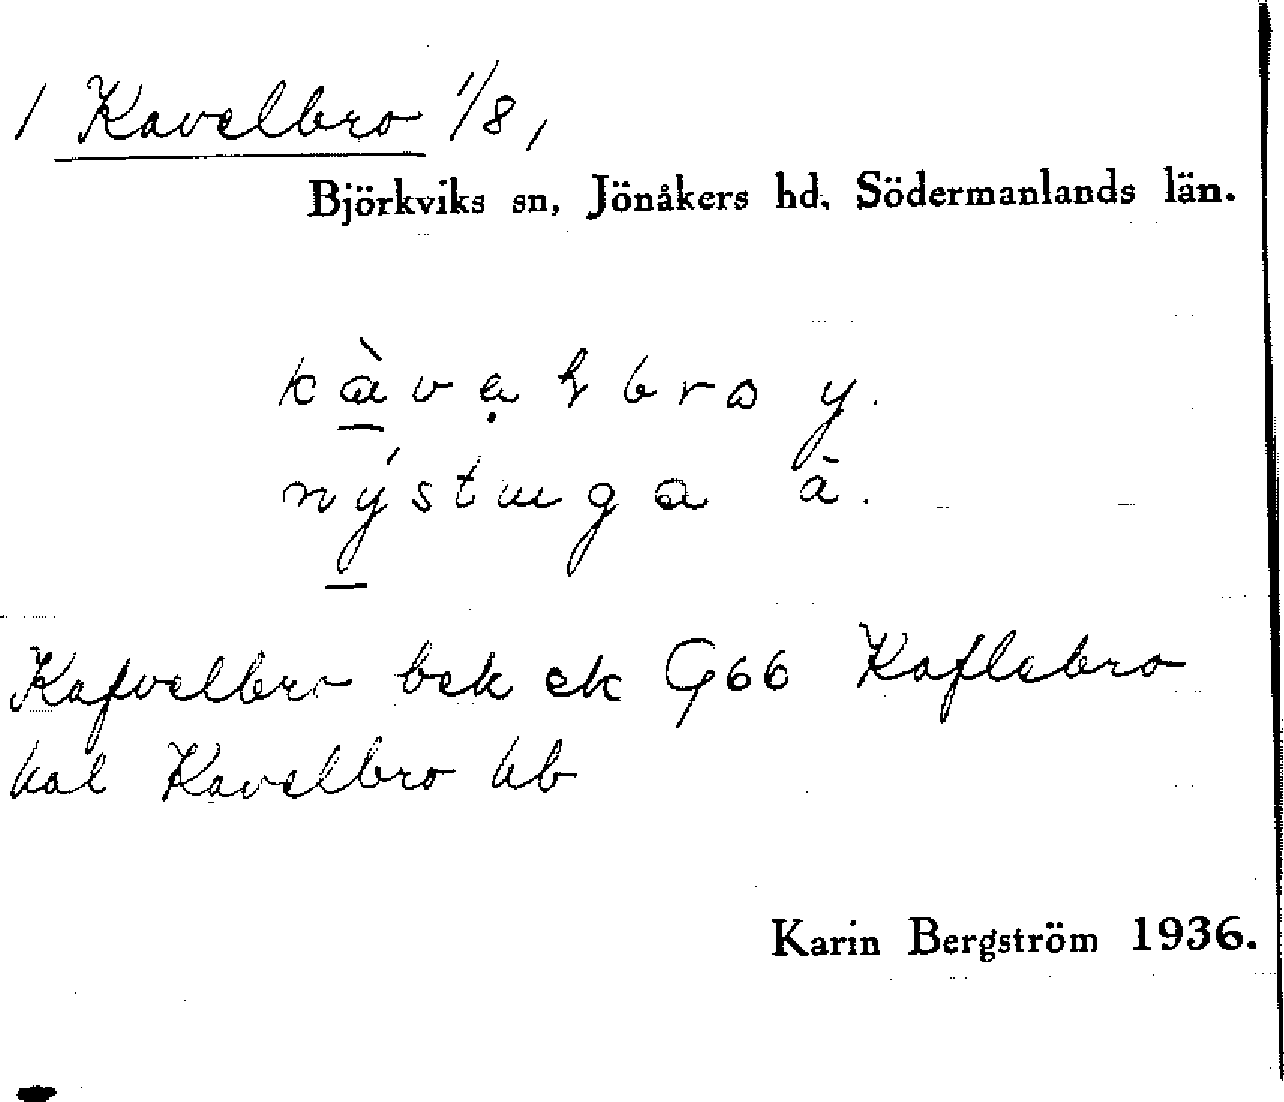 / Kavelbro 1/8,
Björkviks sn, Jönåkers hd, Södermanlands län.
kàvalbro y.
nýstuga å.
Kafvelbro bek ek G66 Kaflebro
hal Kavelbro hb
Karin Bergström 1936.